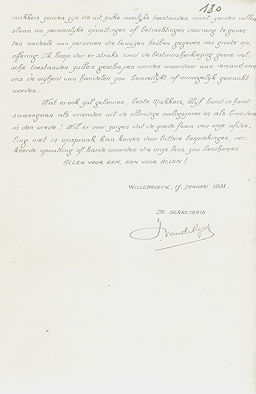 130
makkers zouden zijn die uit zulke moeilijke toestanden munt zouden willen
slaan om persoonlijke opvattingen of betrachtingen voorrang te geven
ten nadele van personen die bewijzen hebben gegeven van groote op-
offering. Ik hoop dat er straks rond de bestuursherkiezing geene val-
sche toestanden zullen geschapen worden waardoor aan iemand van
ons de vrijheid van handelen zou bemoeilijkt of onmogelijk gemaakt
worden.
Wat er ook zal gebeuren, beste Makkers, blijf hand in hand
samengaan als vrienden uit de ellendige oorlogsjaren en als broeders
in den vrede! Wil er voor zorgen dat de goede faam van onze afdee-
ling niet in opspraak kan komen door bittere besprekingen, ver-
keerde opvatting of harde woorden die onze leus zou beschamen.
ALLEN VOOR EEN, EEN VOOR ALLEN!
WILLEBROECK, JANUARI 1931.
DE SEKRETARIS